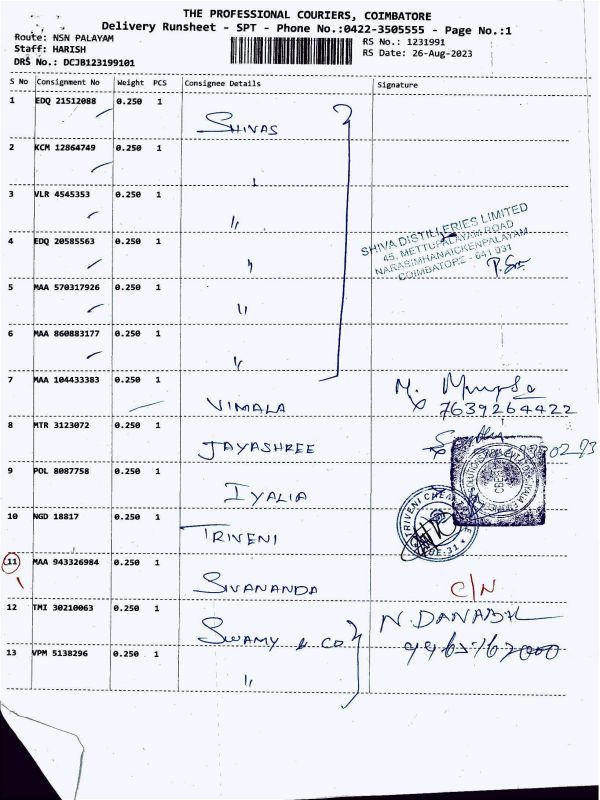 THE PROFESSIONAL COURIERS, COIMBATORE
Delivery Runsheet - SPT - Phone No.:0422-3505555 - Page No.:1
Route: NSN PALAYAM
RS No.: 1231991
Staff: HARISH
RS Date: 26-Aug-2023
DRS No.: DCJB123199101
S No Consignment No Weight PCS Consignee Details Signature
1 EDQ 21512088 0.250 1 SHIVAS
2 KCM 12864749 0.250 1 "
3 VLR 4545353 0.250 1 "
SHIVA DISTILLERIES LIMITED
45, METTUPALAYAM ROAD
NARASIMHANAICKENPALAYAM
COIMBATORE - 641 031
4 EDQ 20585563 0.250 1 "
5 MAA 570317926 0.250 1 "
6 MAA 860883177 0.250 1 "
7 MAA 104433383 0.250 1 VIMALA
7639264422
8 MTR 3123072 0.250 1 JAYASHREE
9 POL 8087758 0.250 1 IYALIA
10 NGD 18817 0.250 1 TRIVENI
TRIVENI
11 MAA 943326984 0.250 1 SIVANANDA C/N
12 TMI 30210063 0.250 1 SWAMY & CO
13 VPM 5138296 0.250 1 "